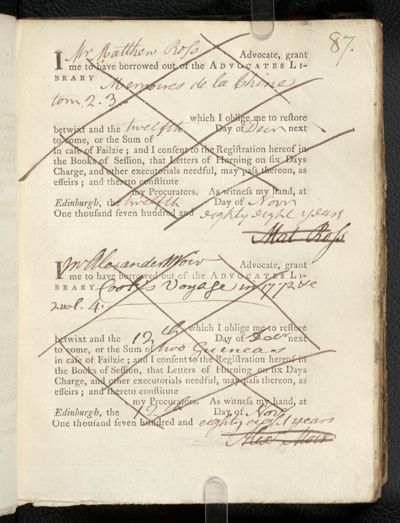 87.
I Mr Matthew Ross Advocate, grant
me to have borrowed out of the ADVOCATES LI-
BRARY Memoires de la Chine
tom 2. 3.
which I oblige me to reſtore
betwixt and the twelfth Day of Decr next
to come, or the Sum of
in caſe of Failzie; and I conſent to the Regiſtration hereof in
the Books of Seſſion, that Letters of Horning on ſix Days
Charge, and other executorials needful, may paſs thereon, as
effeirs; and thereto conſtitute
my Procurators. As witneſs my hand, at
Edinburgh, the twelfth Day of Novr
One thouſand ſeven hundred and eighty eight years
Mat. Ross
I Mr Alexander Moir Advocate, grant
me to have borrowed out of the ADVOCATES LI-
BRARY Cook's Voyage in 1772 &c
2 vol. 4.
which I oblige me to reſtore
betwixt and the 12th Day of Decr next
to come, or the Sum of two Guineas
in caſe of Failzie; and I conſent to the Regiſtration hereof in
the Books of Seſſion, that Letters of Horning on ſix Days
Charge, and other executorials needful, may paſs thereon, as
effeirs; and thereto conſtitute
my Procurators. As witneſs my hand, at
Edinburgh, the 12th Day of Novr
One thouſand ſeven hundred and eighty eight years
Alex Moir